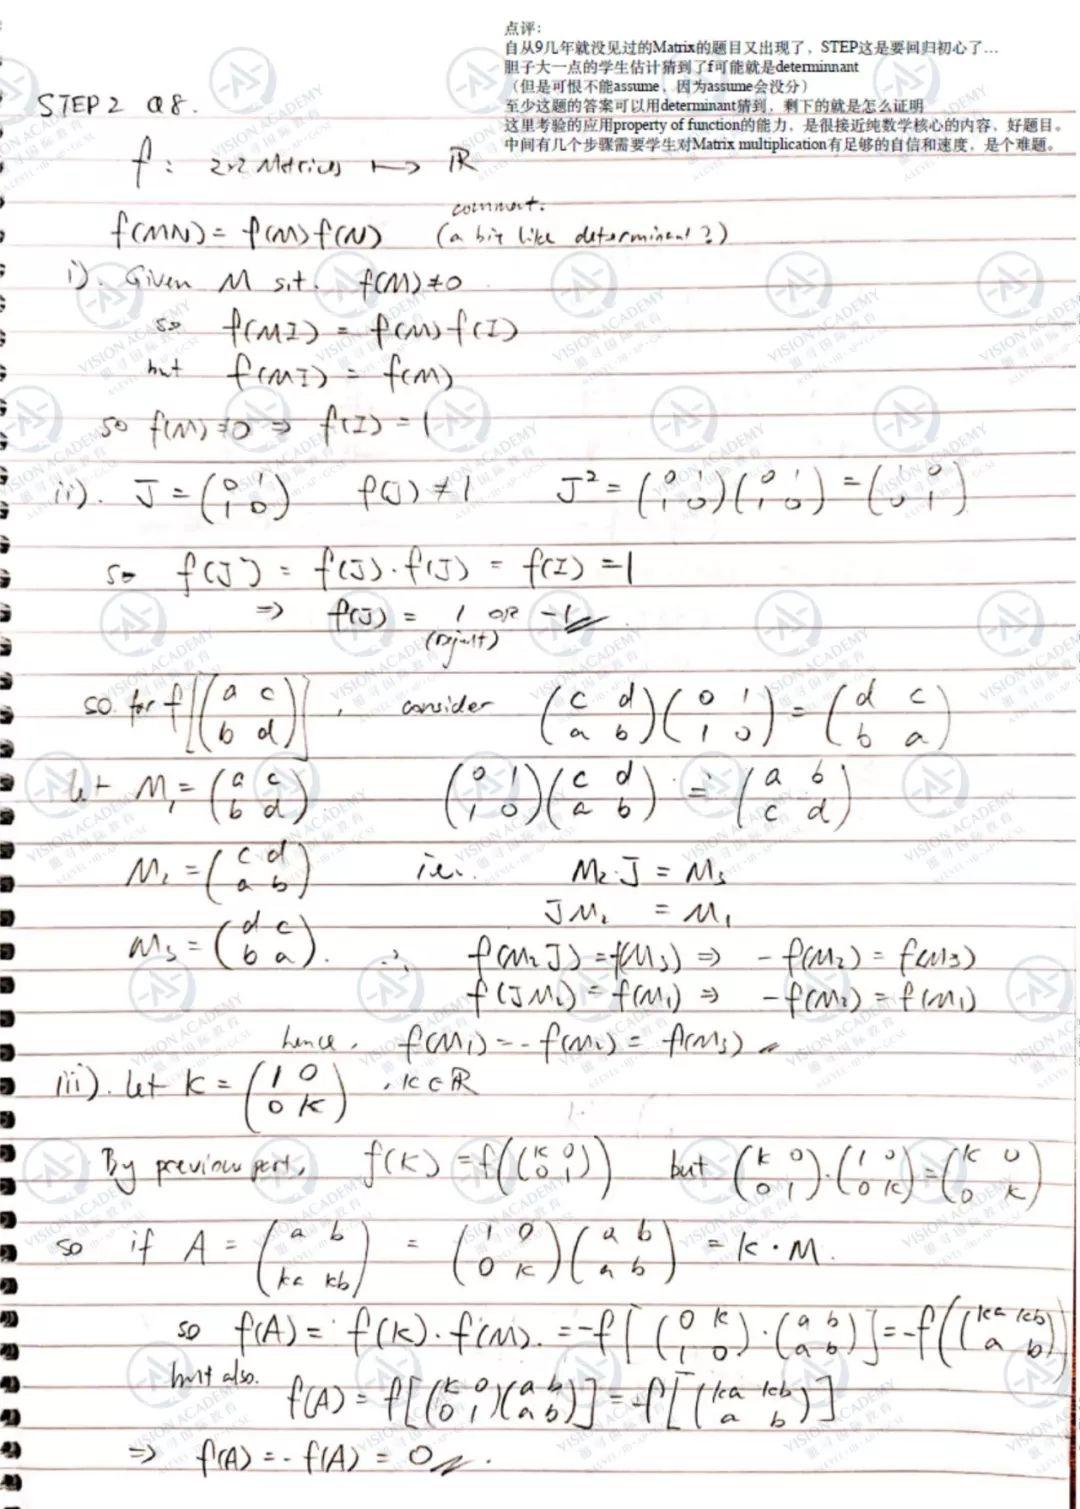 点评：
自从9几年就没见过的Matrix的题目又出现了，STEP这是要回归初心了…
胆子大一点的学生估计猜到了f可能就是determinnant
（但是可恨不能assume，因为assume会没分）
至少这题的答案可以用determinant猜到，剩下的就是怎么证明
这里考验的应用property of function的能力，是很接近纯数学核心的内容，好题目。
中间有几个步骤需要学生对Matrix multiplication有足够的自信和速度，是个难题。
STEP 2 Q8.
f : 2×2 Matrices ↦ ℝ
comment.
f(MN) = f(M) f(N) (a bit like determinent?)
i). Given M s.t. f(M) ≠ 0
so f(MI) = f(M) f(I)
but f(MI) = f(M)
so f(M) ≠ 0 ⇒ f(I) = 1
ii). J = (0 1; 1 0) f(J) ≠ 1 J² = (0 1; 1 0)(0 1; 1 0) = (1 0; 0 1)
so f(J²) = f(J)·f(J) = f(I) = 1
⇒ f(J) = 1 OR -1
(reject)
so for f[(a c; b d)], consider (c d; a b)(0 1; 1 0) = (d c; b a)
let M₁ = (a c; b d) (0 1; 1 0)(c d; a b) = (a b; c d)
M₂ = (c d; a b) i.e. M₂·J = M₃
JM₂ = M₁
M₃ = (d c; b a). ∴ f(M₂J) = f(M₃) ⇒ -f(M₂) = f(M₃)
f(JM₂) = f(M₁) ⇒ -f(M₂) = f(M₁)
hence, f(M₁) = -f(M₂) = f(M₃)
iii). let K = (1 0; 0 k), k ∈ ℝ
By previous part, f(K) = f((k 0; 0 1)) but (k 0; 0 1)·(1 0; 0 k) = (k 0; 0 k)
so if A = (a b; ka kb) = (1 0; 0 k)(a b; a b) = K·M.
so f(A) = f(K)·f(M). = -f[(0 k; 1 0)·(a b; a b)] = -f((ka kb; a b))
but also. f(A) = f[(k 0; 0 1)(a b; a b)] = f[(ka kb; a b)]
⇒ f(A) = -f(A) = 0.
VISION ACADEMY